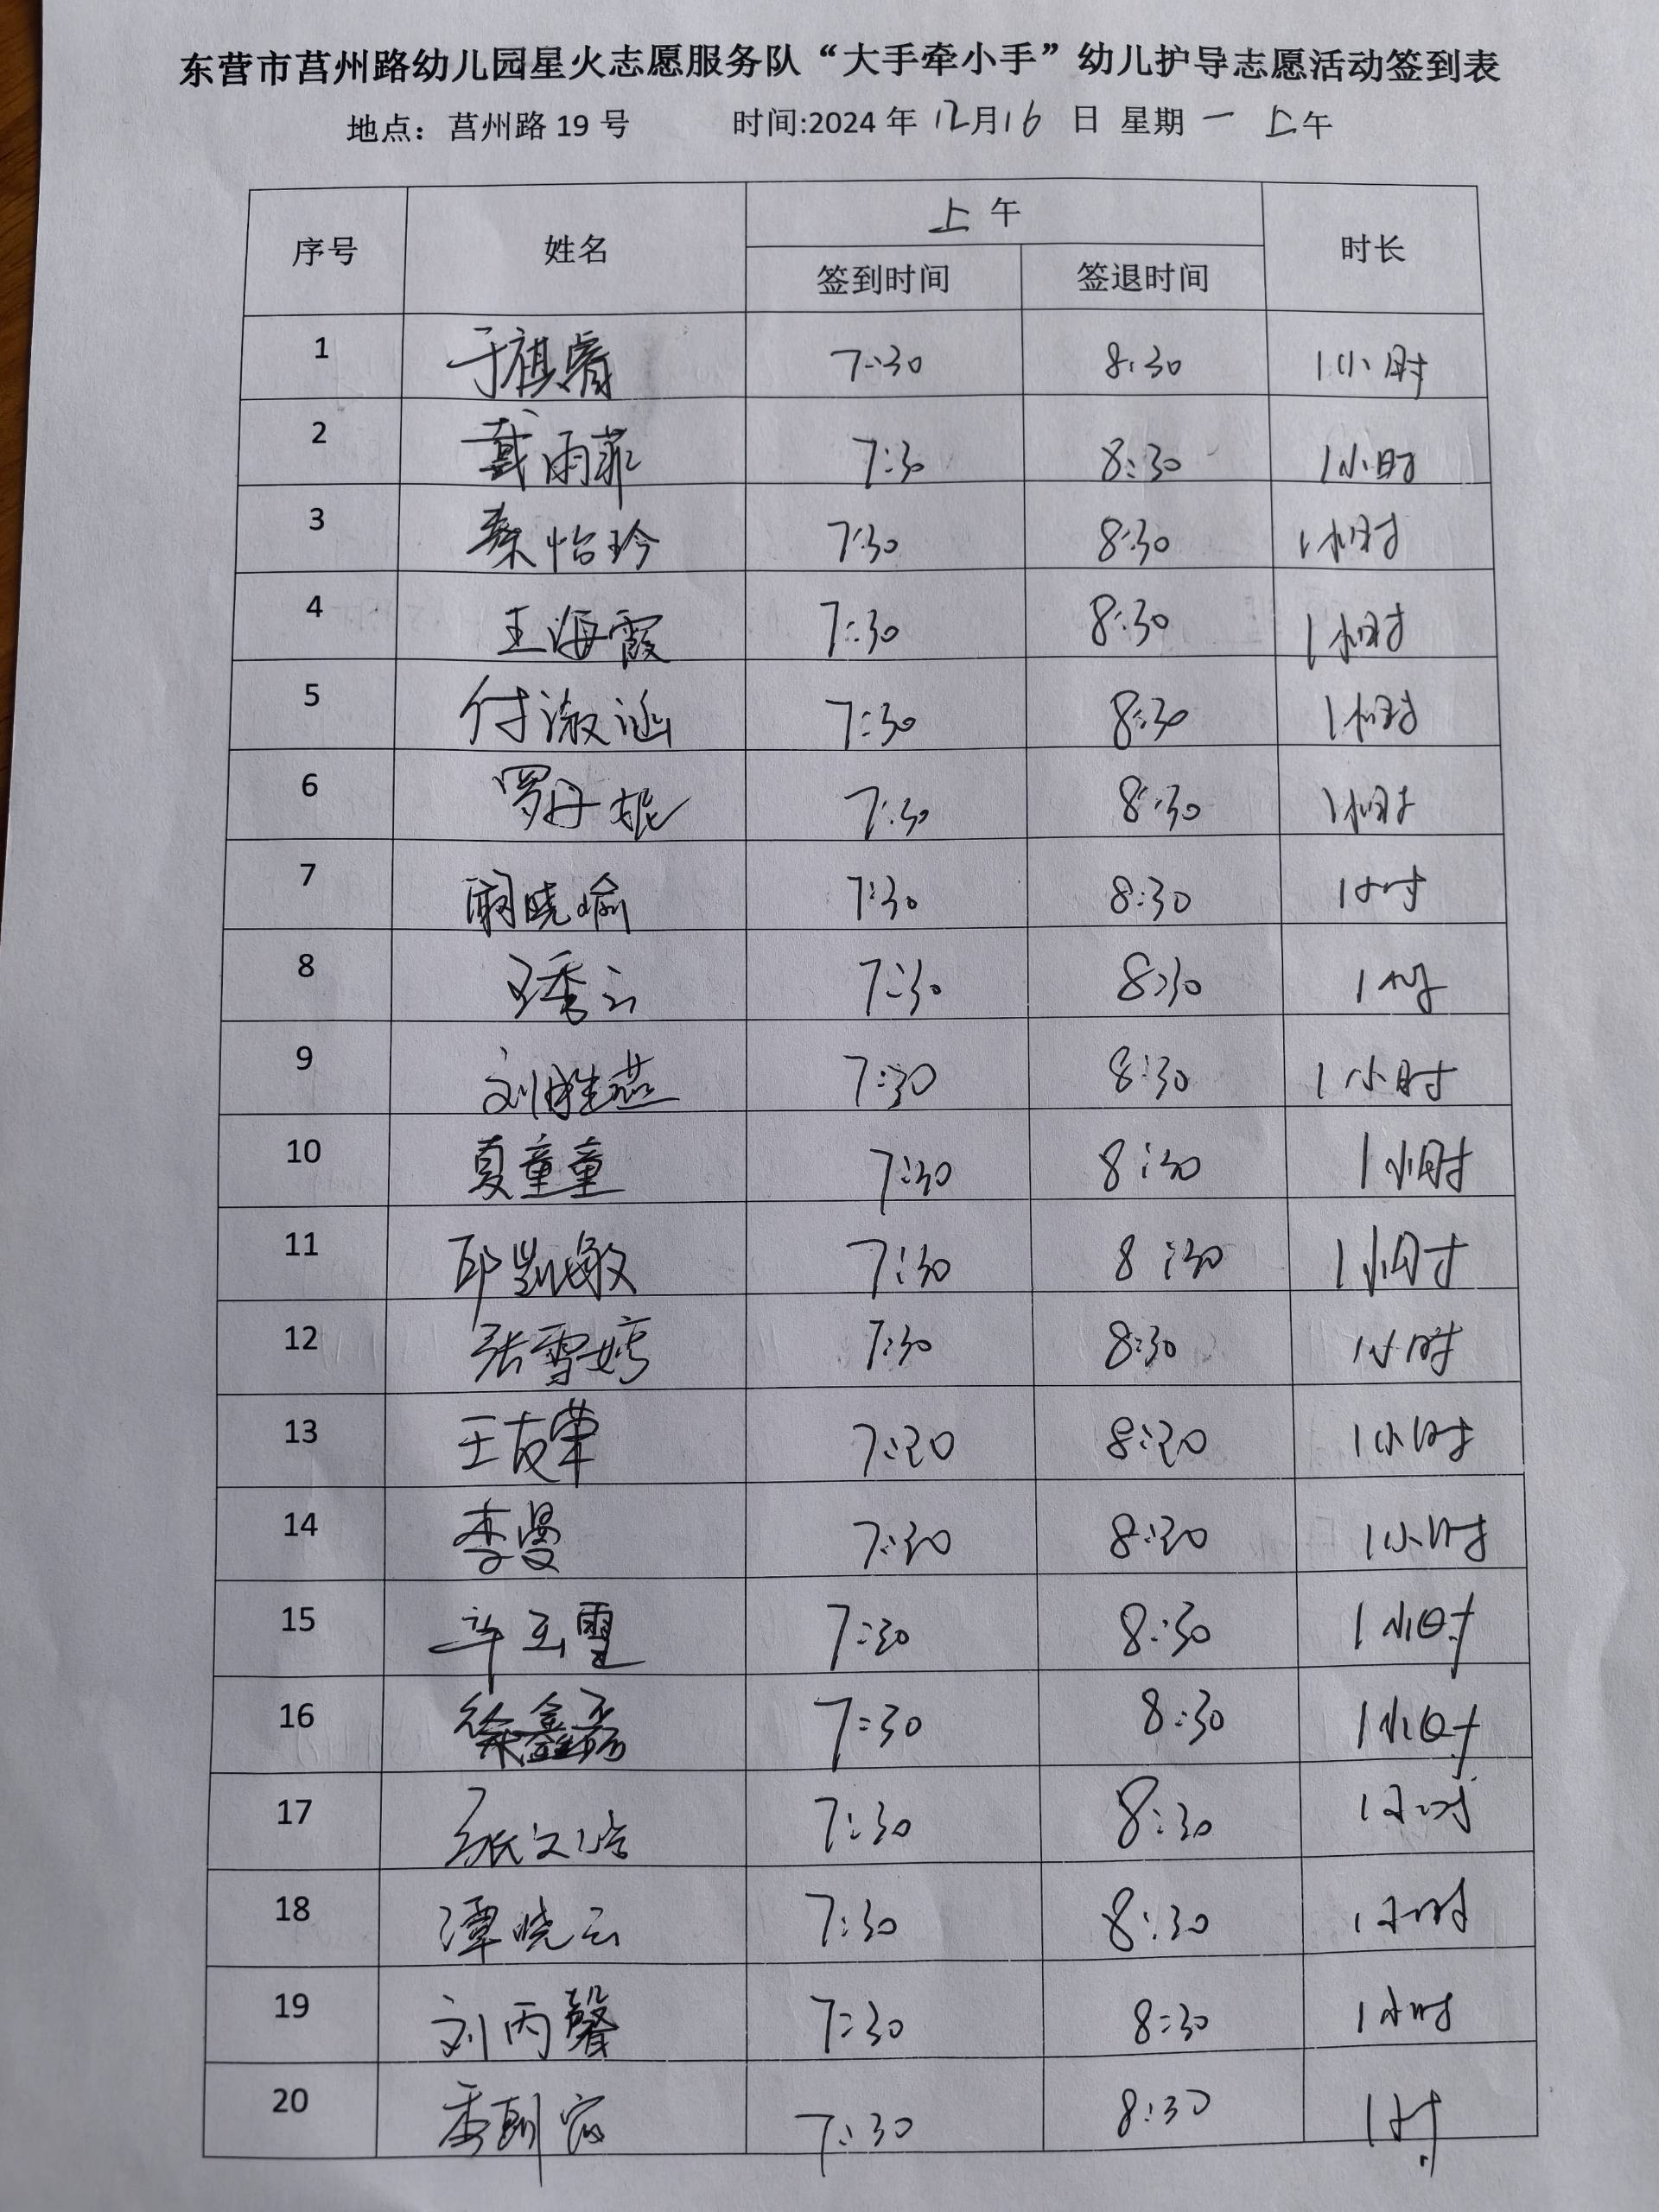 东营市莒州路幼儿园星火志愿服务队“大手牵小手”幼儿护导志愿活动签到表
地点：莒州路 19 号 时间:2024 年 12月16 日 星期 一 上午
序号 姓名 上 午 时长
签到时间 签退时间
1 于祺睿 7:30 8:30 1小时
2 戴雨菲 7:30 8:30 1小时
3 秦怡玲 7:30 8:30 1小时
4 王海霞 7:30 8:30 1小时
5 付淑涵 7:30 8:30 1小时
6 罗丹妮 7:30 8:30 1小时
7 7:30 8:30 1小时
8 王秀云 7:30 8:30 1小时
9 刘胜燕 7:30 8:30 1小时
10 夏童童 7:30 8:30 1小时
11 邱凯敏 7:30 8:30 1小时
12 张雪婷 7:30 8:30 1小时
13 王友荣 7:30 8:30 1小时
14 李曼 7:30 8:30 1小时
15 7:30 8:30 1小时
16 徐鑫磊 7:30 8:30 1小时
17 7:30 8:30 1小时
18 谭晓云 7:30 8:30 1小时
19 刘丙馨 7:30 8:30 1小时
20 7:30 8:30 1小时